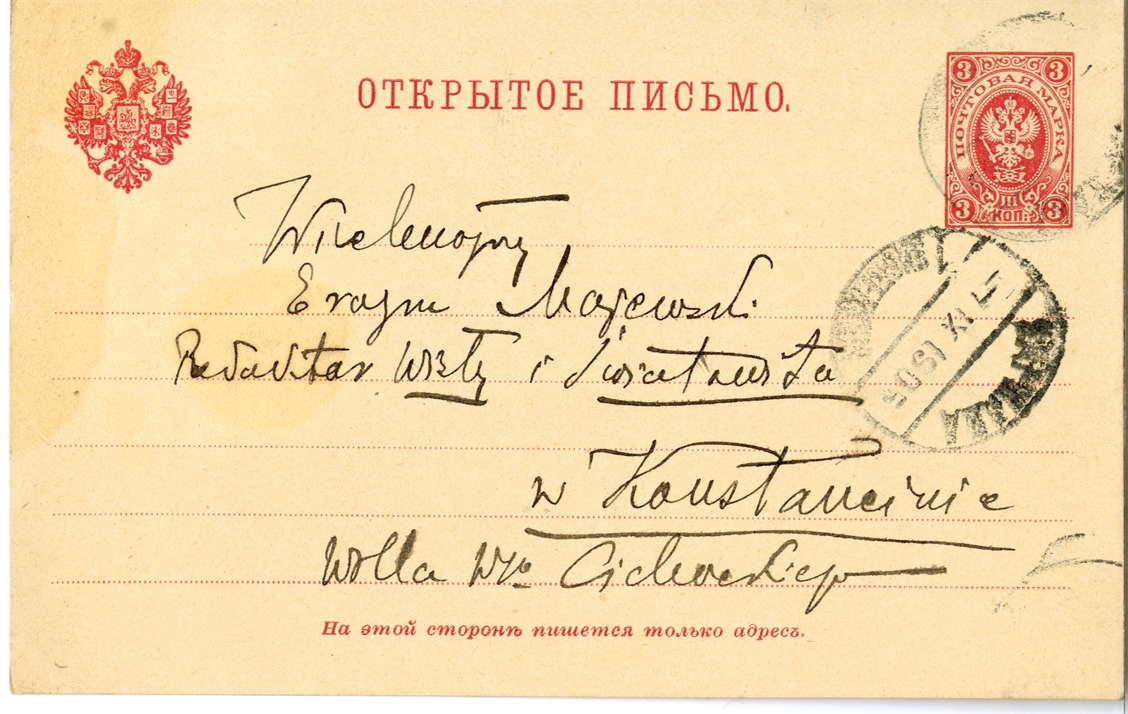 ОТКРЫТОЕ ПИСЬМО.
3 3
ПОЧТОВАЯ МАРКА
3 III КОП. 3
Wielmożny
Erazm Majewski
Redaktor Wisły i Światowita
w Konstancinie
Willa Wgo Cichockiego
На этой сторонѣ пишется только адресъ.